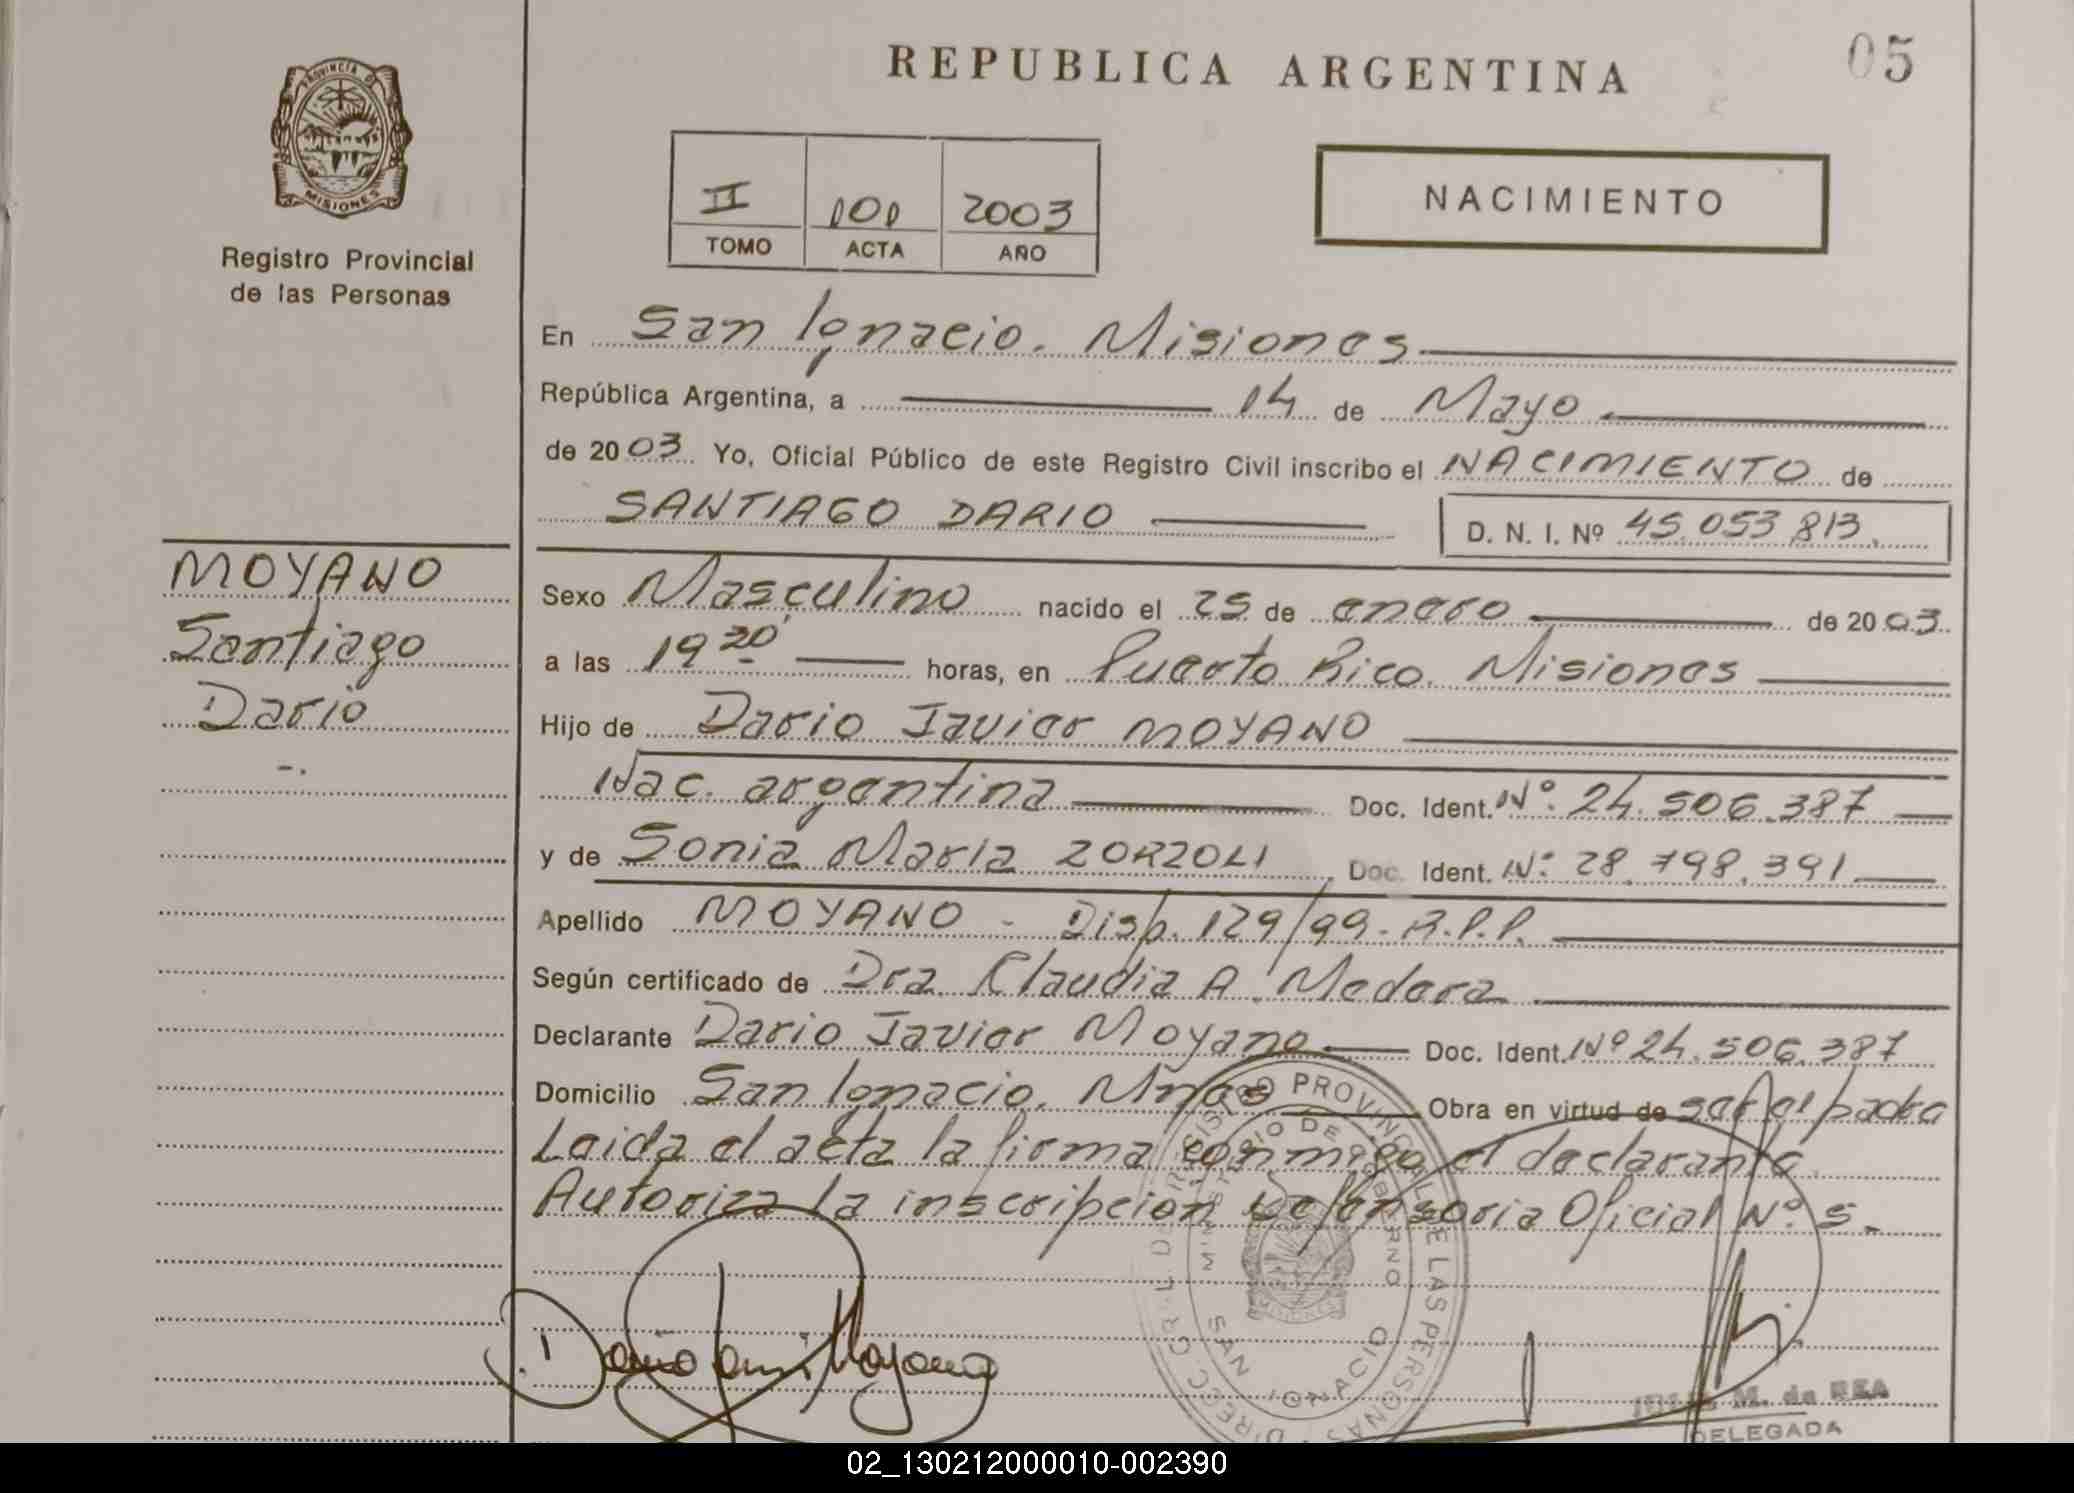 REPUBLICA ARGENTINA
05
PROVINCIA D
MISIONES
Registro Provincial
de las Personas
II 101 2003
TOMO ACTA AÑO
NACIMIENTO
En San Ignacio. Misiones
República Argentina, a 14 de Mayo
de 2003. Yo, Oficial Público de este Registro Civil inscribo el NACIMIENTO de
SANTIAGO DARIO
D. N. I. Nº 45.053.813.
MOYANO
Santiago
Dario
-.
Sexo Masculino nacido el 25 de enero de 2003.
a las 19 20' horas, en Puerto Rico. Misiones
Hijo de Dario Javier MOYANO
Nac. argentina Doc. Ident. Nº. 24.506.387
y de Sonia Maria ZORZOLI Doc. Ident. Nº. 28.798.391
Apellido MOYANO - Disp. 129/99. R.P.P.
Según certificado de Dra. Claudia A. Medera
Declarante Dario Javier Moyano Doc. Ident. Nº 24.506.387
Domicilio San Ignacio. Mnes Obra en virtud de ser el padre
Leida el acta la firma conmigo el declarante.
Autoriza la inscripcion Defensoria Oficial Nº. 5.-
Dario Javi Moyano
DIRECC. GRAL. DE REGISTRO PROVINCIAL DE LAS PERSONAS
MINISTERIO DE GOBIERNO
SAN IGNACIO
M. de REA
DELEGADA
02_130212000010-002390